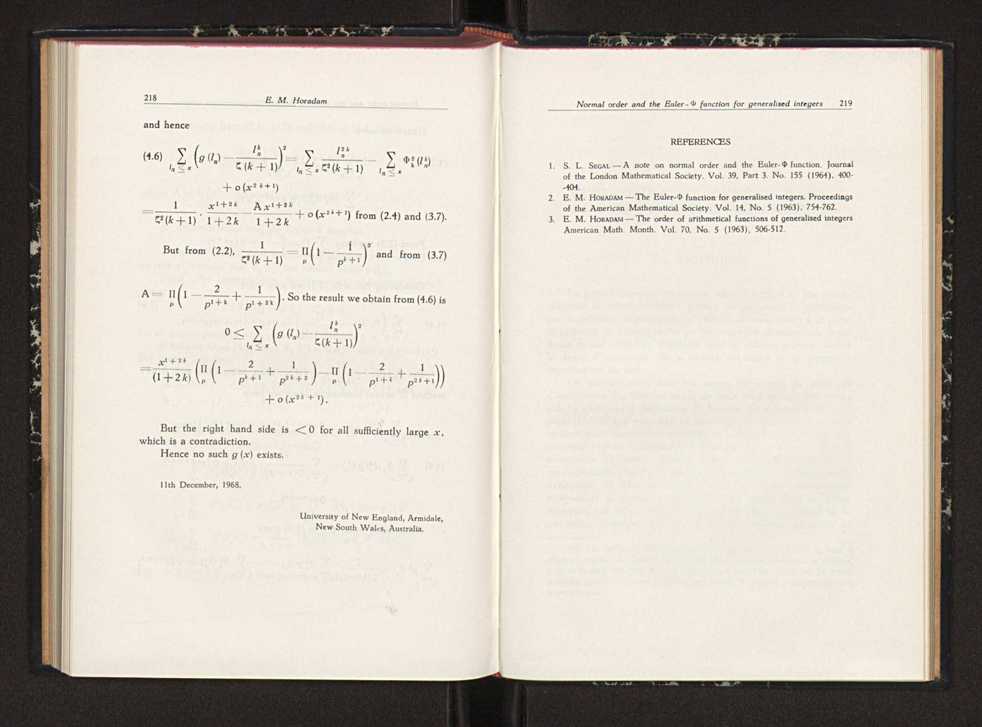 218
E. M. Horadam
and hence
(4.6) ∑_{l_n ≤ x} ( g (l_n) − l_n^k / ζ (k + 1) )² = ∑_{l_n ≤ x} l_n^{2k} / ζ² (k + 1) − ∑_{l_n ≤ x} Φ_k² (l_n^k)
+ o (x^{2k+1})
= 1 / ζ² (k + 1) · x^{1+2k} / 1 + 2k − A x^{1+2k} / 1 + 2k + o (x^{2k+1}) from (2.4) and (3.7).
But from (2.2), 1 / ζ² (k + 1) = Π_p ( 1 − 1 / p^{k+1} )² and from (3.7)
A = Π_p ( 1 − 2 / p^{1+k} + 1 / p^{1+2k} ). So the result we obtain from (4.6) is
0 ≤ ∑_{l_n ≤ x} ( g (l_n) − l_n^k / ζ (k + 1) )²
= x^{1+2k} / (1 + 2k) ( Π_p ( 1 − 2 / p^{k+1} + 1 / p^{2k+2} ) − Π_p ( 1 − 2 / p^{1+k} + 1 / p^{2k+1} ) )
+ o (x^{2k+1}).
But the right hand side is < 0 for all sufficiently large x,
which is a contradiction.
Hence no such g (x) exists.
11th December, 1968.
University of New England, Armidale,
New South Wales, Australia.
Normal order and the Euler-Φ function for generalised integers 219
REFERENCES
1. S. L. SEGAL — A note on normal order and the Euler-Φ function. Journal
of the London Mathematical Society. Vol. 39, Part 3. No. 155 (1964), 400-
-404.
2. E. M. HORADAM — The Euler-Φ function for generalised integers. Proceedings
of the American Mathematical Society. Vol. 14, No. 5 (1963), 754-762.
3. E. M. HORADAM — The order of arithmetical functions of generalised integers
American Math. Month. Vol. 70, No. 5 (1963), 506-512.